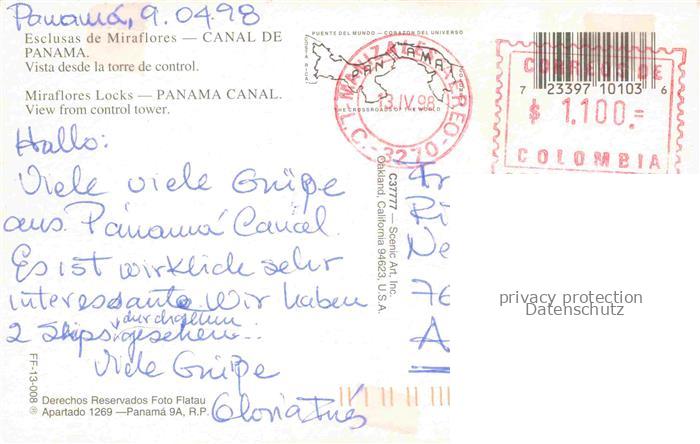 Panamá, 9.04.98
Esclusas de Miraflores — CANAL DE
PANAMA.
Vista desde la torre de control.
Miraflores Locks — PANAMA CANAL.
View from control tower.
Hallo:
Viele viele Grüße
aus Panamá Canal.
Es ist wirklich sehr
interessante Wir haben
durchgehen
2 Skips gesehen..
Viele Grüße
Gloria Inés
FF-13-008 ®
Derechos Reservados Foto Flatau
Apartado 1269 —Panamá 9A, R.P.
PUENTE DEL MUNDO — CORAZON DEL UNIVERSO
PANAMA
THE CROSSROADS OF THE WORLD
13 IV 98
3270
C37777 — Scenic Art, Inc.
Oakland, California 94623, U.S.A.
CORREOS DE
7 23397 10103 6
$ 1.100.=
COLOMBIA
Fr
Ri
Ne
76
A
privacy protection
Datenschutz